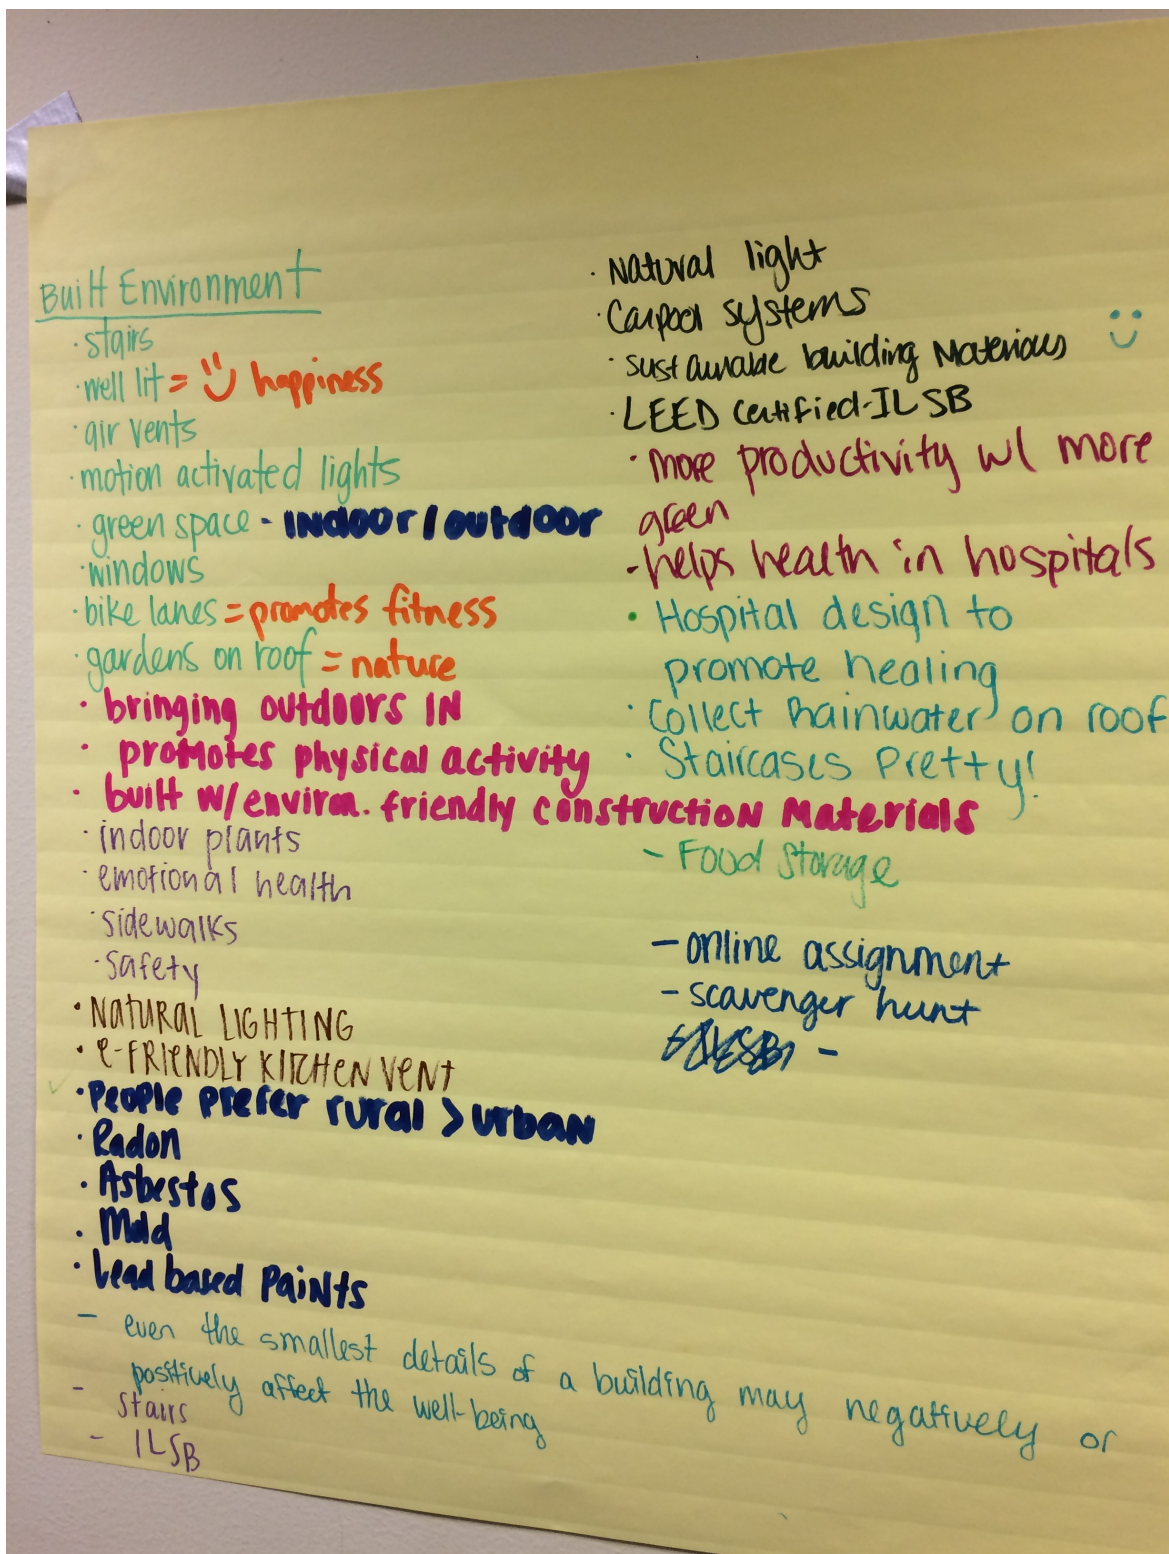 Built Environment
· stairs
· well lit = happiness
· air vents
· motion activated lights
· green space - INdoor / outdoor
· windows
· bike lanes = promotes fitness
· gardens on roof = nature
· bringing outdoors IN
· promotes physical activity
· built w/ environ. friendly construction Materials
· indoor plants
· emotional health
· sidewalks
· safety
· NATURAL LIGHTING
· e-FRIENDLY KITCHEN VENT
· People prefer rural > urban
· Radon
· Asbestos
· Mold
· Lead based Paints
- even the smallest details of a building may negatively or
positively affect the well-being
- stairs
- ILSB
· Natural light
· Carpool systems
· sustainable building Materials
· LEED Certified-ILSB
· more productivity w/ more
green
- helps health in hospitals
· Hospital design to
promote healing
· Collect Rainwater on roof
· Staircases Pretty!
- Food Storage
- online assignment
- scavenger hunt